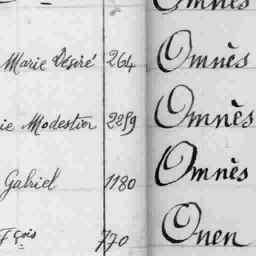 Omnès
Marie Désiré 264 Omnès
ie Modestin 2259 Omnès
Gabriel 1180 Omnès
Fçois 770 Onen